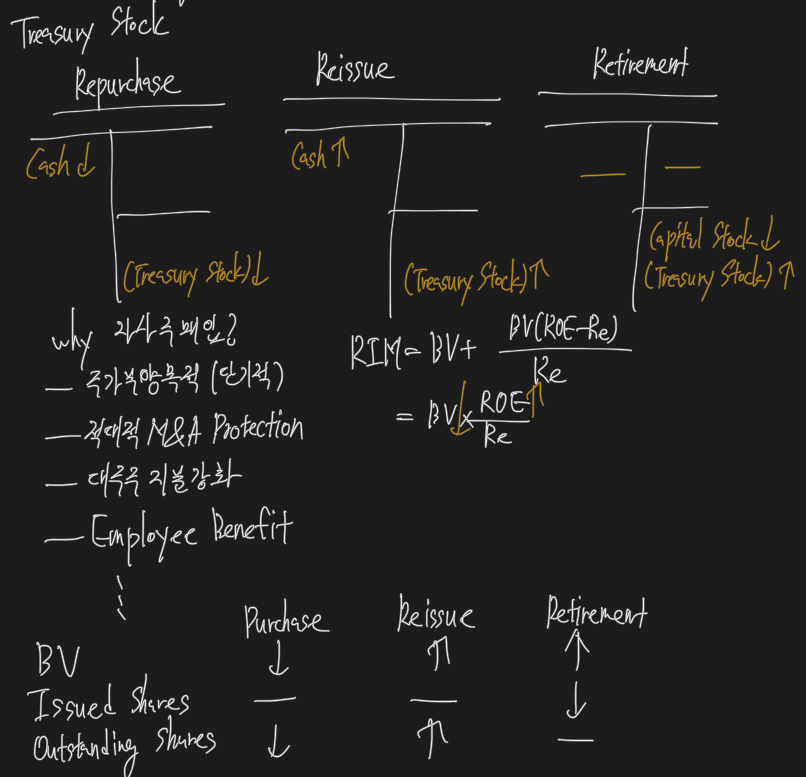 Treasury Stock
Repurchase Reissue Retirement
Cash ↓ Cash ↑ — —
(Treasury Stock)↓ (Treasury Stock)↑ Capital Stock ↓
(Treasury Stock)↑
why 자사주매입?
— 주가부양목적 (단기적)
— 적대적 M&A Protection
— 대주주 지분강화
— Employee Benefit
RIM = BV + BV(ROE-Re) / Re
= BV↓ × ROE↑ / Re
Purchase Reissue Retirement
BV ↓ ↑ ↑
Issued Shares — — ↓
Outstanding Shares ↓ ↑ —